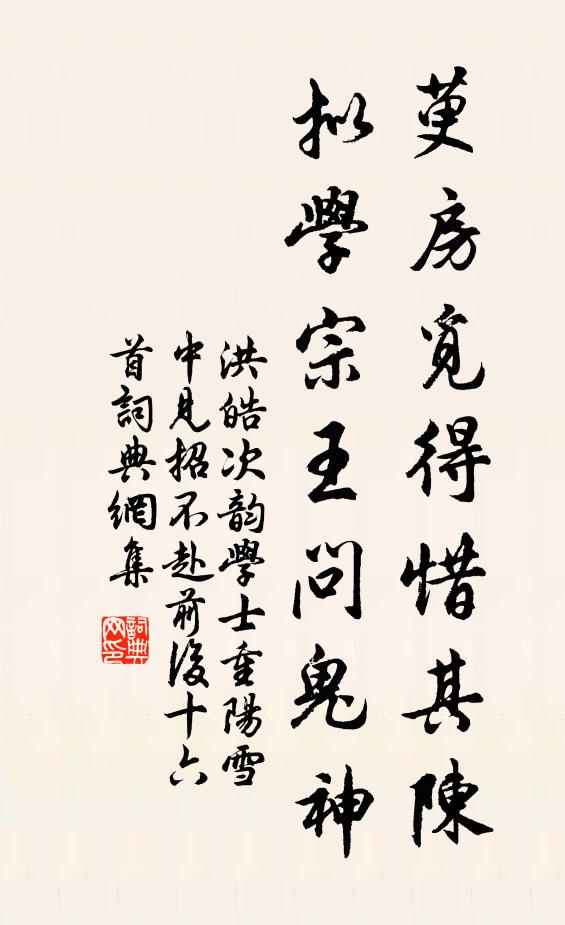 萸房覓得惜其陳
擬學宗王問鬼神
洪皓次韵學士重陽雪
中見招不赴前後十六
首詞典網集
詞典
网印